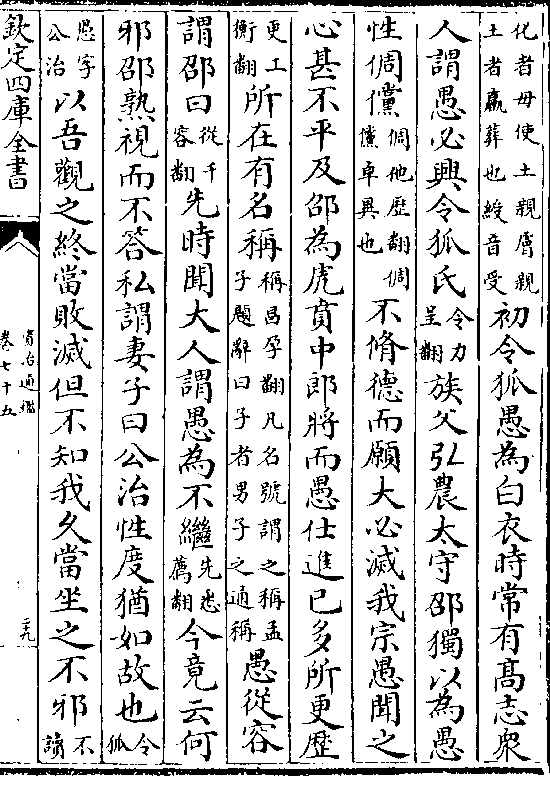 化者毋使土親膚親土者羸葬也綬音受初令狐愚為白衣時常有髙志衆
人謂愚必興令狐氏令力呈翻族父弘農太守邵獨以為愚
性倜儻倜他歴翻倜儻卓異也不脩德而願大必滅我宗愚聞之
心甚不平及邵為虎賁中郎將而愚仕進已多所更歴
更工衡翻所在有名稱稱昌孕翻凡名號謂之稱孟子題辭曰子者男子之通稱愚從容
謂邵曰從千容翻先時聞大人謂愚為不繼先悉薦翻今竟云何
邪邵熟視而不答私謂妻子曰公治性度猶如故也令狐
愚字公治以吾觀之終當敗滅但不知我久當坐之不邪不讀
欽定四庫全書
資治通鑑
卷七十五
二九